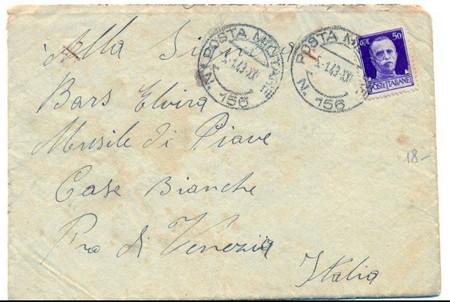 Alla Signora
Bars Elvira
Musile di Piave
Case Bianche
Pro di Venezia
Italia
POSTA MILITARE
N. 156
POSTA MILITARE
N. 156
50
POSTE ITALIANE
18-